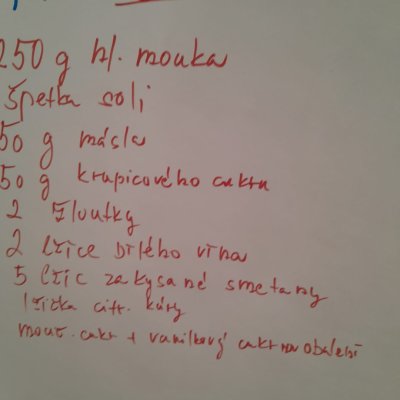 250 g hl. mouka
špetka soli
50 g másla
50 g krupicového cukru
2 žloutky
2 lžíce bílého vína
5 lžic zakysané smetany
lžička citr. kůry
mouč. cukr + vanilkový cukr na obalení